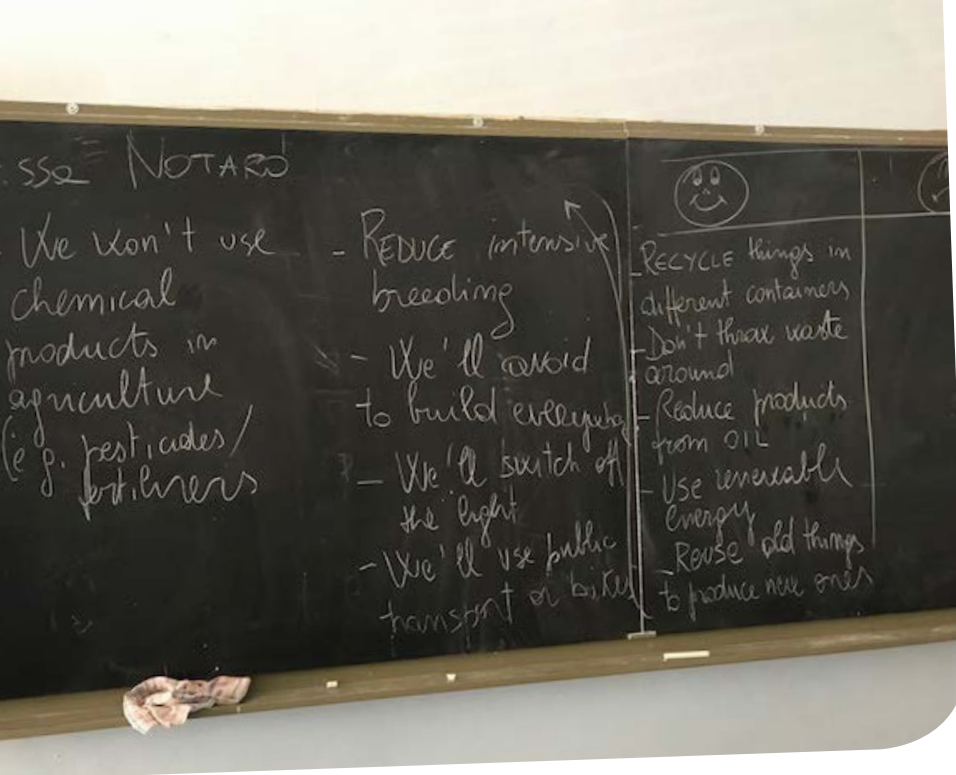 .ssa NOTARO
- We won't use
chemical
products in
agriculture
(e.g. pesticides/
fertilizers
- REDUCE intensive
breeding
- We'll avoid
to build everywhere
- We'll switch off
the light
- We'll use public
transport or bikes
- RECYCLE things in
different containers
- Don't throw waste
around
- Reduce products
from OIL
- Use renewable
energy
- Reuse old things
to produce new ones